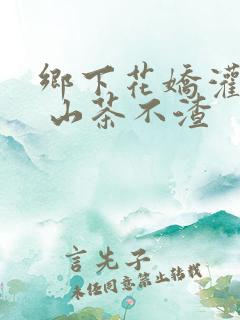 鄉下花嬌灌
山茶不渣
言先子
未任同意禁止转载